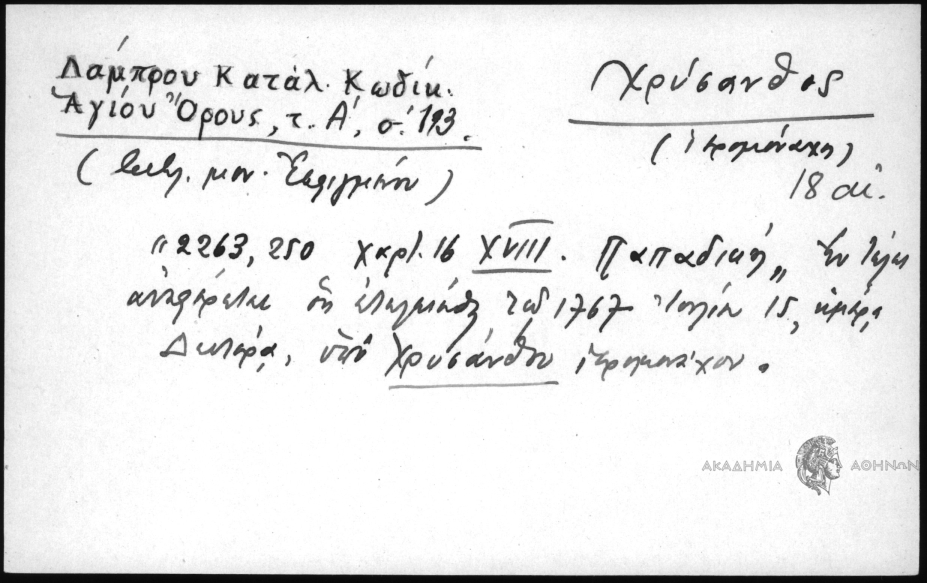 Λάμπρου Κατάλ. Κωδίκ.
Ἁγίου Ὄρους, τ. Α', σ. 193.
(βιβλ. μον. Ἐσφιγμένου)
Χρύσανθος
(ἱερομόναχος)
18 αἰ.
"2263, 250 χαρτ. 16 XVIII. Παπαδική„ Ἐν τέλει
ἀναφέρεται ὅτι τοῦ 1767 Ἰουλίου 15, ἡμέρᾳ
Δευτέρᾳ, ὑπὸ Χρυσάνθου ἱερομονάχου.
ΑΚΑΔΗΜΙΑ ΑΘΗΝΩΝ